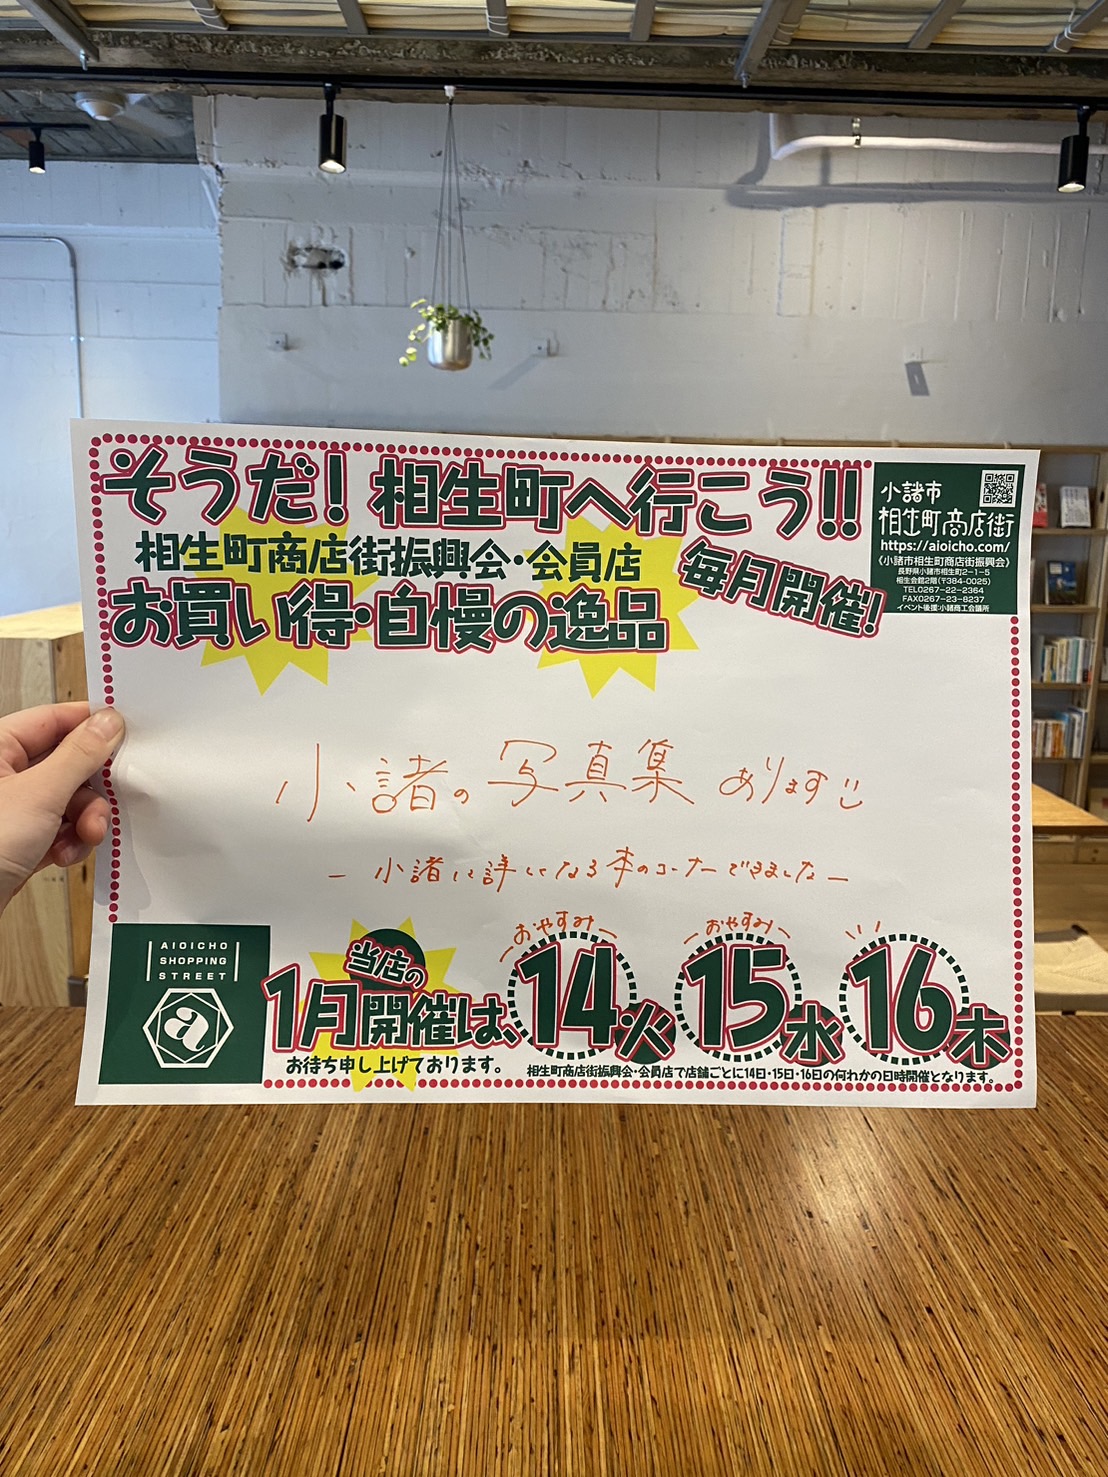 そうだ！相生町へ行こう!!
相生町商店街振興会・会員店
お買い得・自慢の逸品
毎月開催!
小諸市
相生町商店街
https://aioicho.com/
《小諸市相生町商店街振興会》
長野県小諸市相生町2-1-5
相生会館2階(〒384-0025)
TEL0267-22-2364
FAX0267-23-8237
イベント後援:小諸商工会議所
小諸の写真集あります
－小諸に詳しくなる本のコーナーできました－
AIOICHO
SHOPPING
STREET
a
当店の
1月開催は、
お待ち申し上げております。
おやすみ
14火
おやすみ
15水
16木
相生町商店街振興会・会員店で店舗ごとに14日・15日・16日の何れかの日時開催となります。